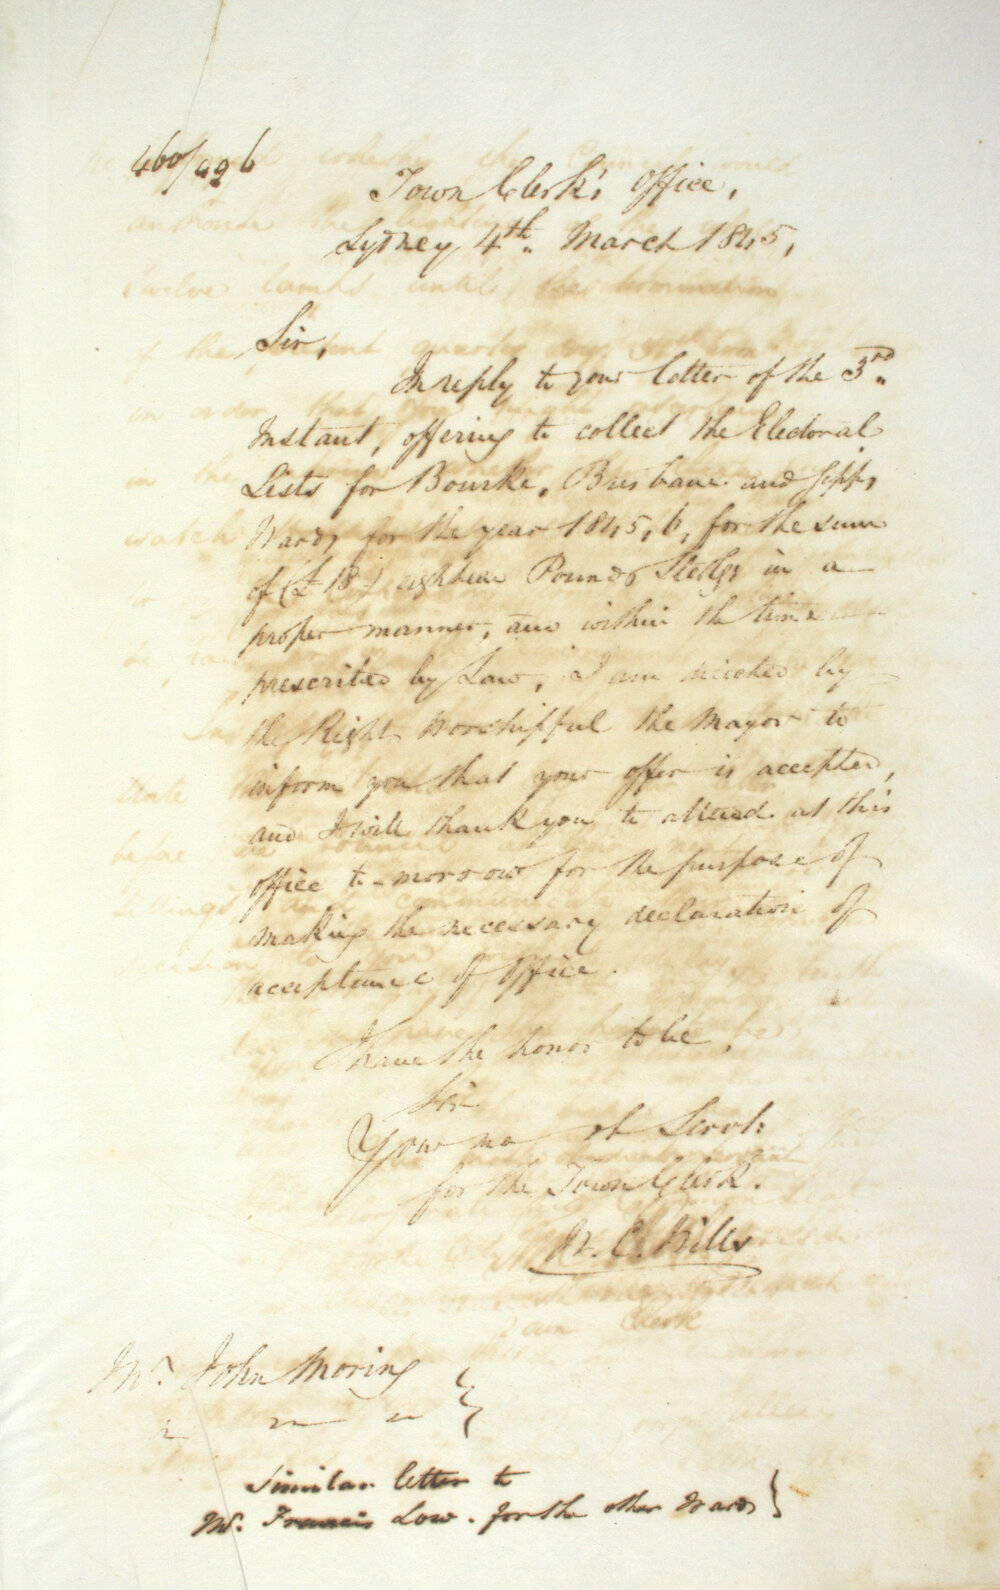 460/926
Town Clerk's Office,
Sydney 4th. March 1845,
Sir,
In reply to your letter of the 3rd.
Instant, offering to collect the Electoral
Lists for Bourke, Brisbane and Gipps
Wards for the year 1845,6, for the sum
of (£18) eighteen Pounds Sterlg in a
proper manner, and within the time
prescribed by Law, I am directed by
the Right Worshipful the Mayor to
inform you that your offer is accepted,
and I will thank you to attend at this
office to-morrow for the purpose of
making the necessary declaration of
acceptance of office.
I have the honor to be,
Sir
Your mo ob Servt:
for the Town Clerk.
W. C. Wills
Mr. John Moring
Similar letter to
Mr. Francis Low. for the other Wards